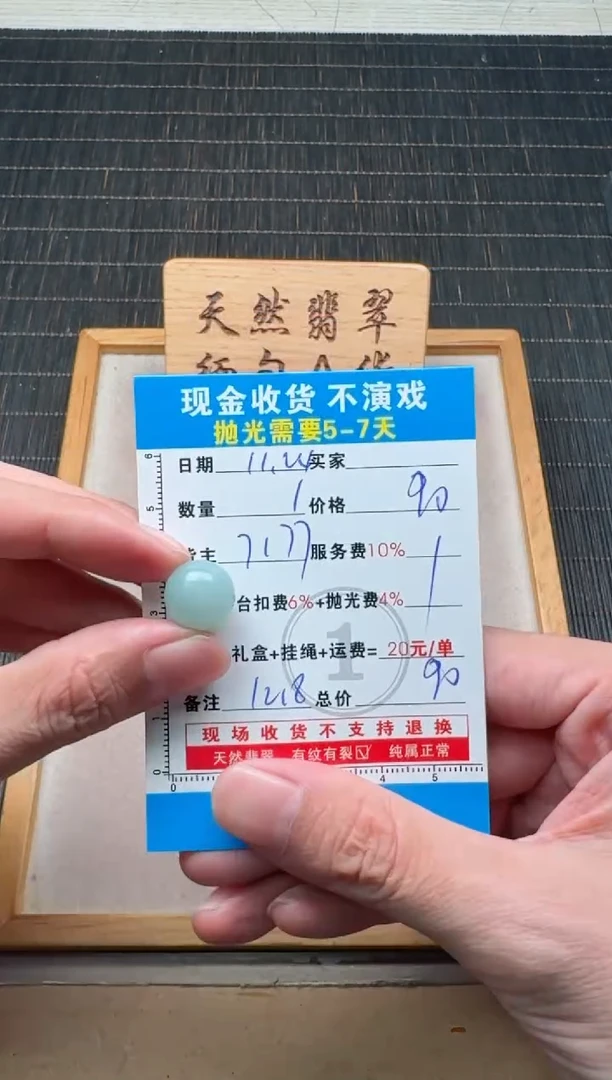 天然翡翠
缅甸A货
现金收货 不演戏
抛光需要5-7天
日期 11.24 买家
数量 1 价格 90
货主 7177 服务费10%
台扣费6%+抛光费4%
礼盒+挂绳+运费= 20元/单
备注 1218 总价 90
1
现场收货不支持退换
天然翡翠 有纹有裂☑ 纯属正常
6
5
3
1
0
0
4
5